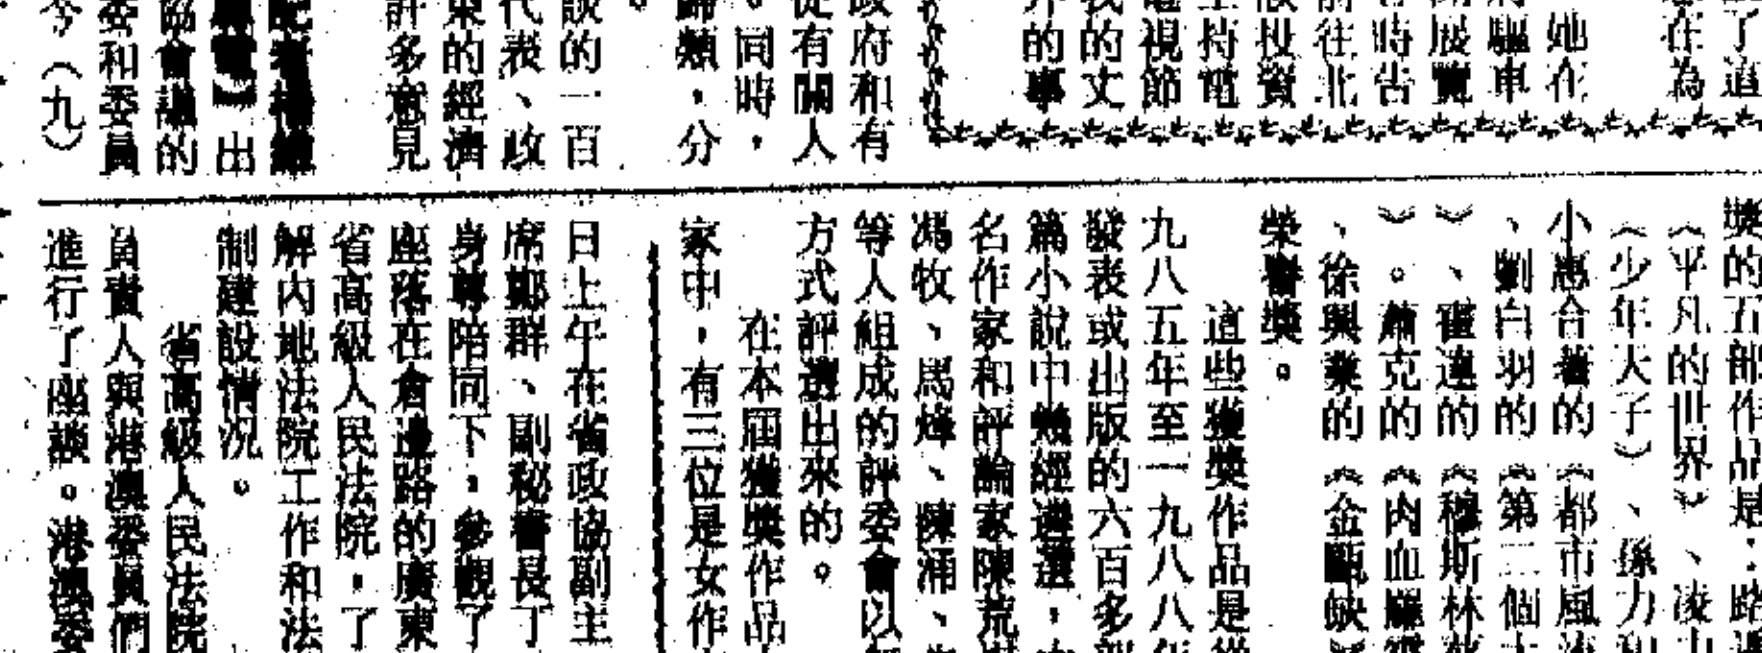 了這
意在為
她在
驅車
展覽
時告
前往北
投資
主持電
電視節
我的丈
外的事
政府和有
從有關人
。同時，
歸類，分
。
談的一百
代表、政
東的經濟
許多意見
】出
協會議的
委和委員
（九）
獎的五部作品是：路遙
《平凡的世界》、凌力
《少年天子》、孫力和
小惠合著的《都市風流
、劉白羽的《第二個太
》、霍達的《穆斯林葬
》。蕭克的《肉血羅霄
、徐興業的《金甌缺》
榮譽獎。
這些獲獎作品是從
九八五年至一九八八年
發表或出版的六百多部
篇小說中幾經遴選，由
名作家和評論家陳荒煤
馮牧、馬烽、陳涌、
等人組成的評委會以無
方式評選出來的。
在本屆獲獎作品
家中，有三位是女作
日上午在省政協副主
席鄭群、副秘書長丁
身尊陪同下，參觀了
座落在倉邊路的廣東
省高級人民法院，了
解內地法院工作和法
制建設情況。
省高級人民法院
負責人與港澳委員們
進行了座談。港澳委